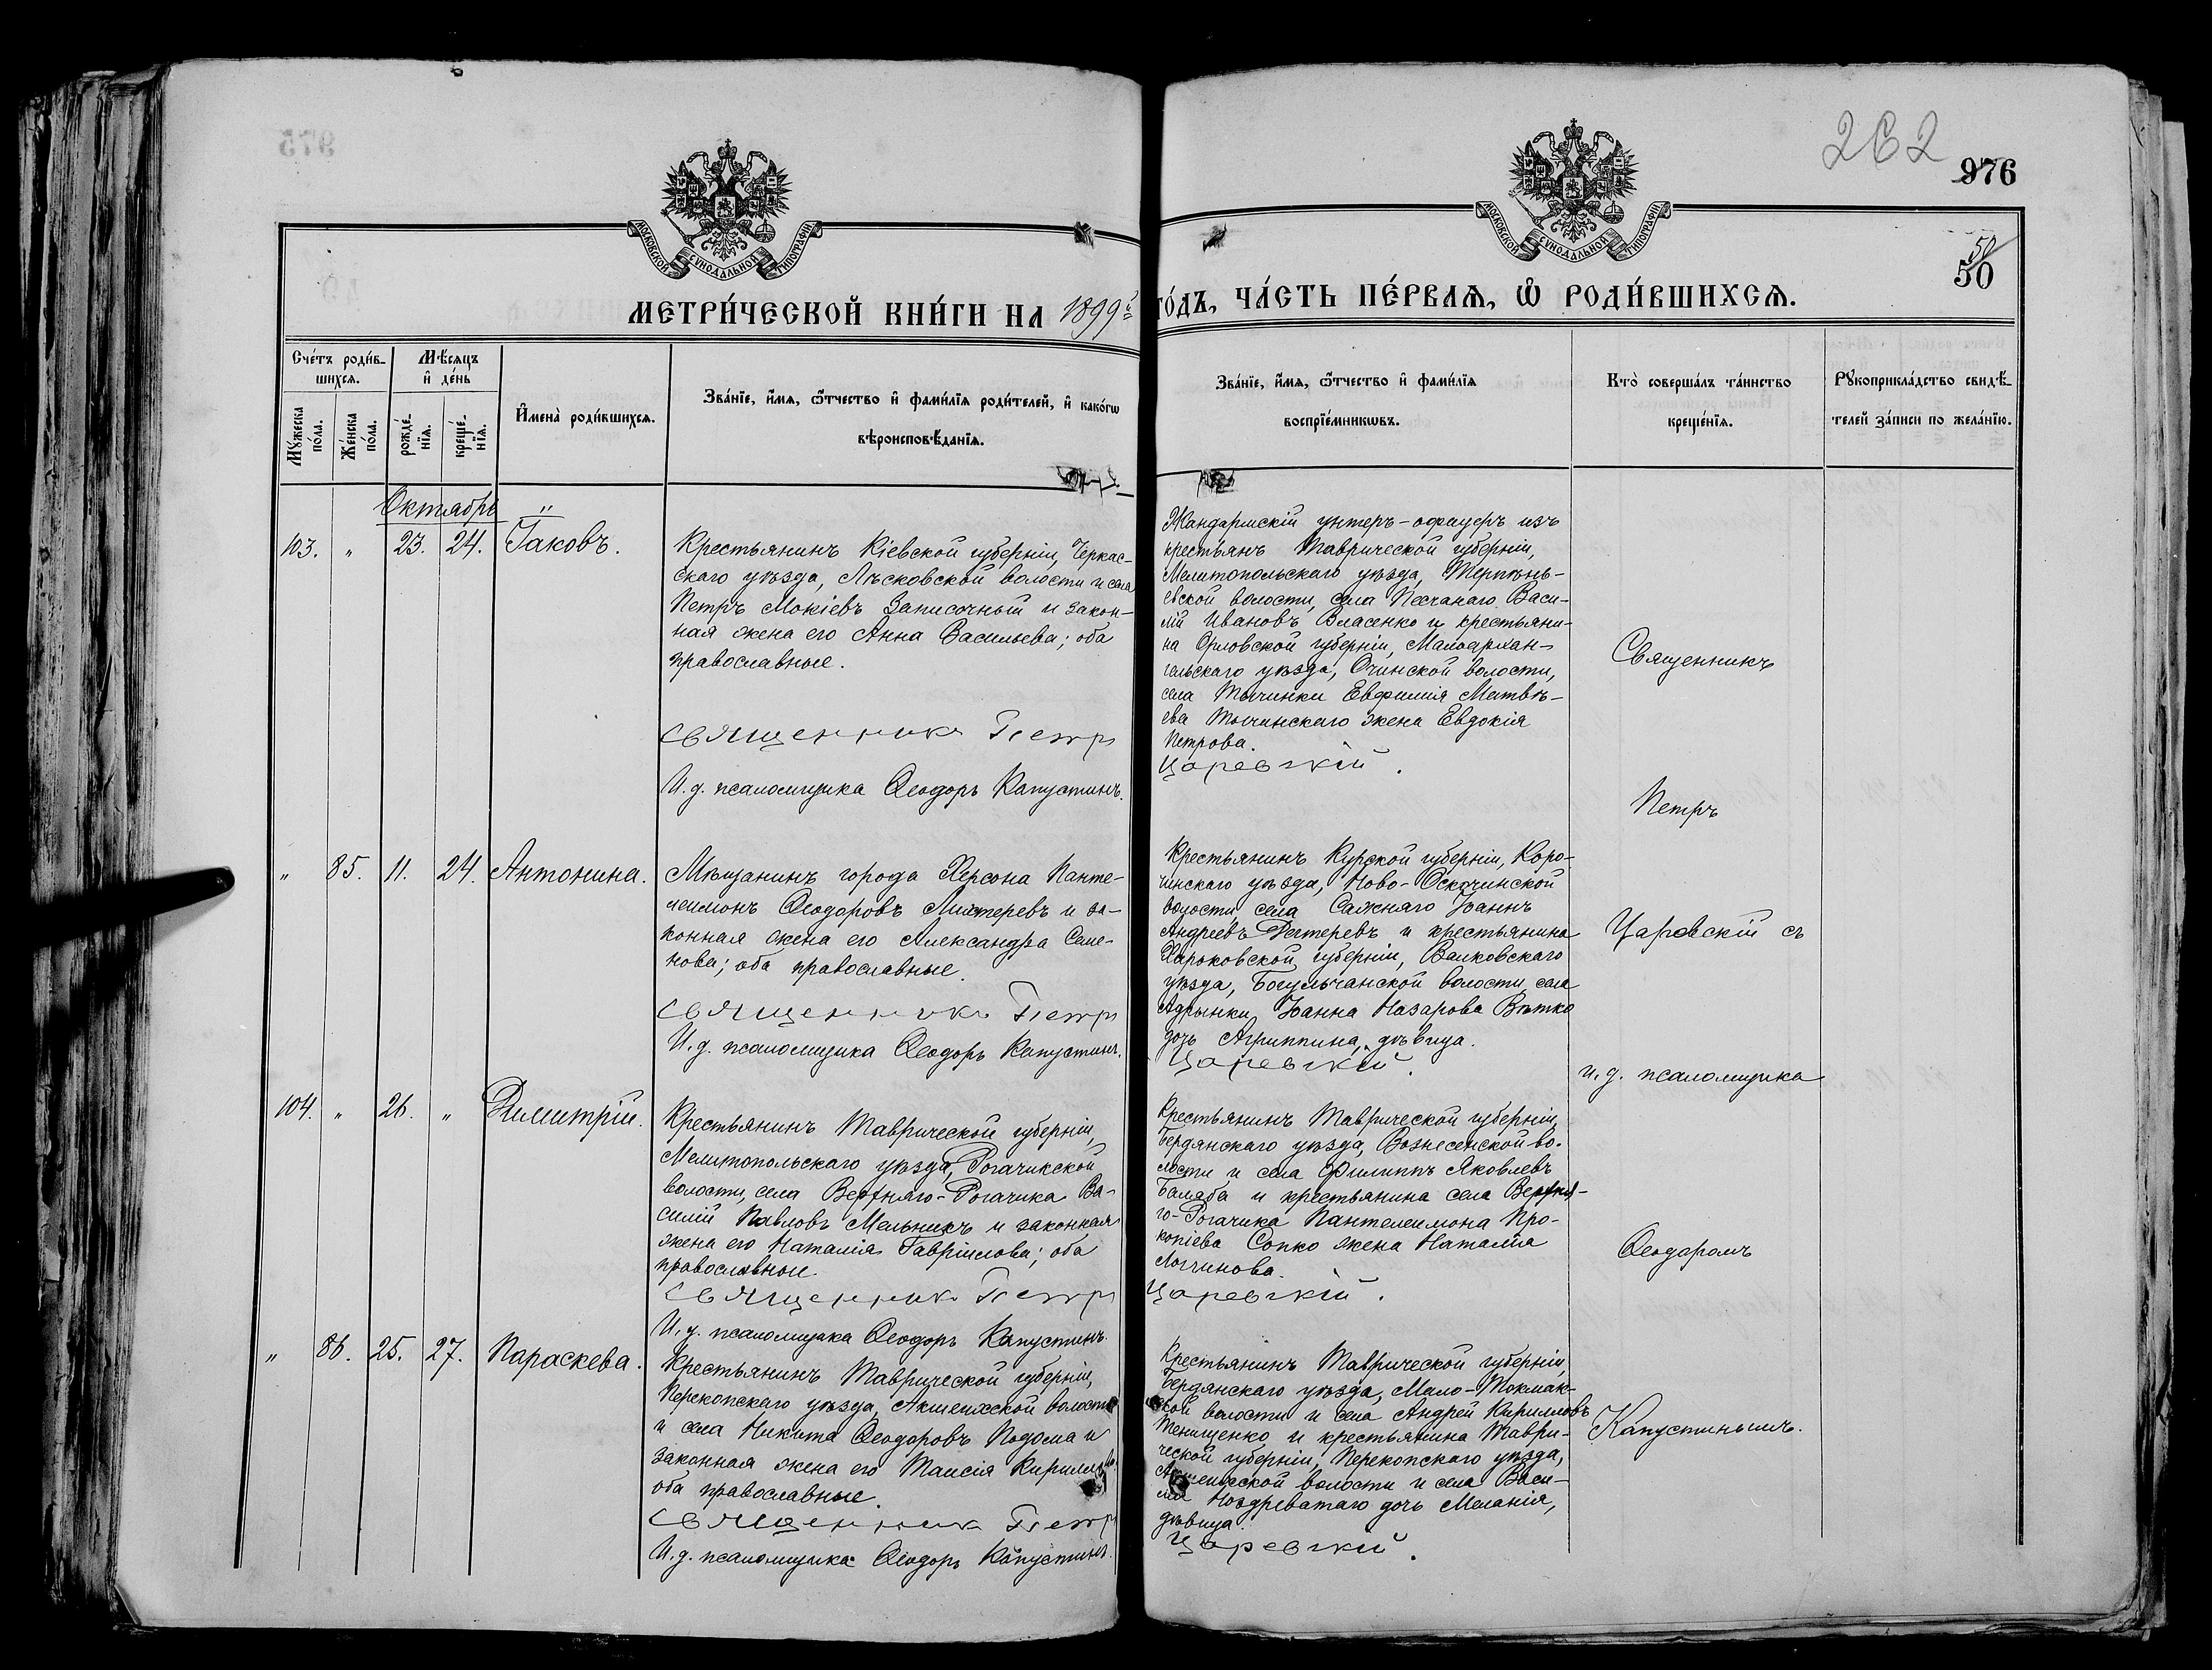 262
976
50
50
МОСКОВСКОЙ СѴНОДАЛЬНОЙ ТИПОГРАФІИ
МОСКОВСКОЙ СѴНОДАЛЬНОЙ ТИПОГРАФІИ
МЕТРИ́ЧЕСКОЙ КНИ́ГИ НА 1899й
ГО́ДЪ, ЧА́СТЬ ПЕ́РВАѦ, Ѽ РОДИ́ВШИХСѦ.
Сче́тъ роди́в-
шихсѧ.
Мѣ́сѧцъ
и҆ де́нь
Мꙋ́жеска
по́ла.
Же́нска
по́ла.
рожде́-
нїѧ.
креще́-
нїѧ.
И҆мена̀ роди́вшихсѧ.
Зва́нїе, и҆́мѧ, ѻ҆́тчество и҆ фами́лїѧ роди́телей, и҆ како́гѡ
вѣроисповѣ́данїѧ.
Зва́нїе, и҆́мѧ, ѻ҆́тчество и҆ фами́лїѧ
воспрїе́мникѡвъ.
Кто̀ соверша́лъ та́инство
креще́нїѧ.
Рꙋкоприкла́дство свидѣ́-
телей за́писи по жела́нїю.
Октябрь "
103. " 23. 24. Іаковъ.
Крестьянинъ Кіевской губерніи, Черкас-
скаго уѣзда, Лѣсковской волости и села
Петръ Мокіевъ Записочный и закон-
ная жена его Анна Васильева; оба
православные.
Священникъ Петръ
И. д. псаломщика Ѳеодоръ Капустинъ.
Жандармскій унтеръ-офицеръ изъ
крестьянъ Таврической губерніи,
Мелитопольскаго уѣзда, Терпѣнь-
евской волости, села Песчанаго Васи-
лій Ивановъ Власенко и крестьяни-
на Орловской губерніи, Малоархан-
гельскаго уѣзда, Очинской волости,
села Тычинки Евфимія Матвѣ-
ева Тычинскаго жена Евдокія
Петрова.
Царевскій.
Священникъ
Петръ
" 85. 11. 24. Антонина.
Мѣщанинъ города Херсона Панте-
леимонъ Ѳеодоровъ и за-
конная жена его Александра Семе-
нова; оба православные.
Священникъ Петръ
И. д. псаломщика Ѳеодоръ Капустинъ.
Крестьянинъ Курской губерніи, Коро-
чинскаго уѣзда, Ново-Оскочинской
волости, села Сажняго Іоаннъ
Андреевъ Дегтеревъ и крестьянина
Харьковской губерніи, Валковскаго
уѣзда, волости, села
Адрынки Іоанна Назарова Вѣтко
дочь Агриппина, дѣвица.
Царевскій.
Царевскій съ
и. д. псаломщика
104. " 26. " Димитрій.
Крестьянинъ Таврической губерніи,
Мелитопольскаго уѣзда, Рогачикской
волости, села Верхняго-Рогачика Ва-
силій Павловъ Мельникъ и законная
жена его Наталія Гавріилова; оба
православные.
Священникъ Петръ
И. д. псаломщика Ѳеодоръ Капустинъ.
Крестьянинъ Таврической губерніи,
Бердянскаго уѣзда, Вознесенской во-
лости и села Филиппъ Яковлевъ
Балаба и крестьянина села Верхня-
го-Рогачика Пантелеимона Про-
копіева Сопко жена Наталія
Логгинова.
Царевскій.
Ѳеодоромъ
" 86. 25. 27. Параскева.
Крестьянинъ Таврической губерніи,
Перекопскаго уѣзда, волости
и села Никита Ѳеодоровъ и
законная жена его Таисія
оба православные.
Священникъ Петръ
И. д. псаломщика Ѳеодоръ Капустинъ.
Крестьянинъ Таврической губерніи,
Бердянскаго уѣзда, Мало-Токмак-
ской волости и села Андрей Кирилловъ
Тенищенко и крестьянина Таври-
ческой губерніи, Перекопскаго уѣзда,
волости и села Васи-
лія Ноздреватаго дочь Меланія,
дѣвица.
Царевскій.
Капустинымъ.